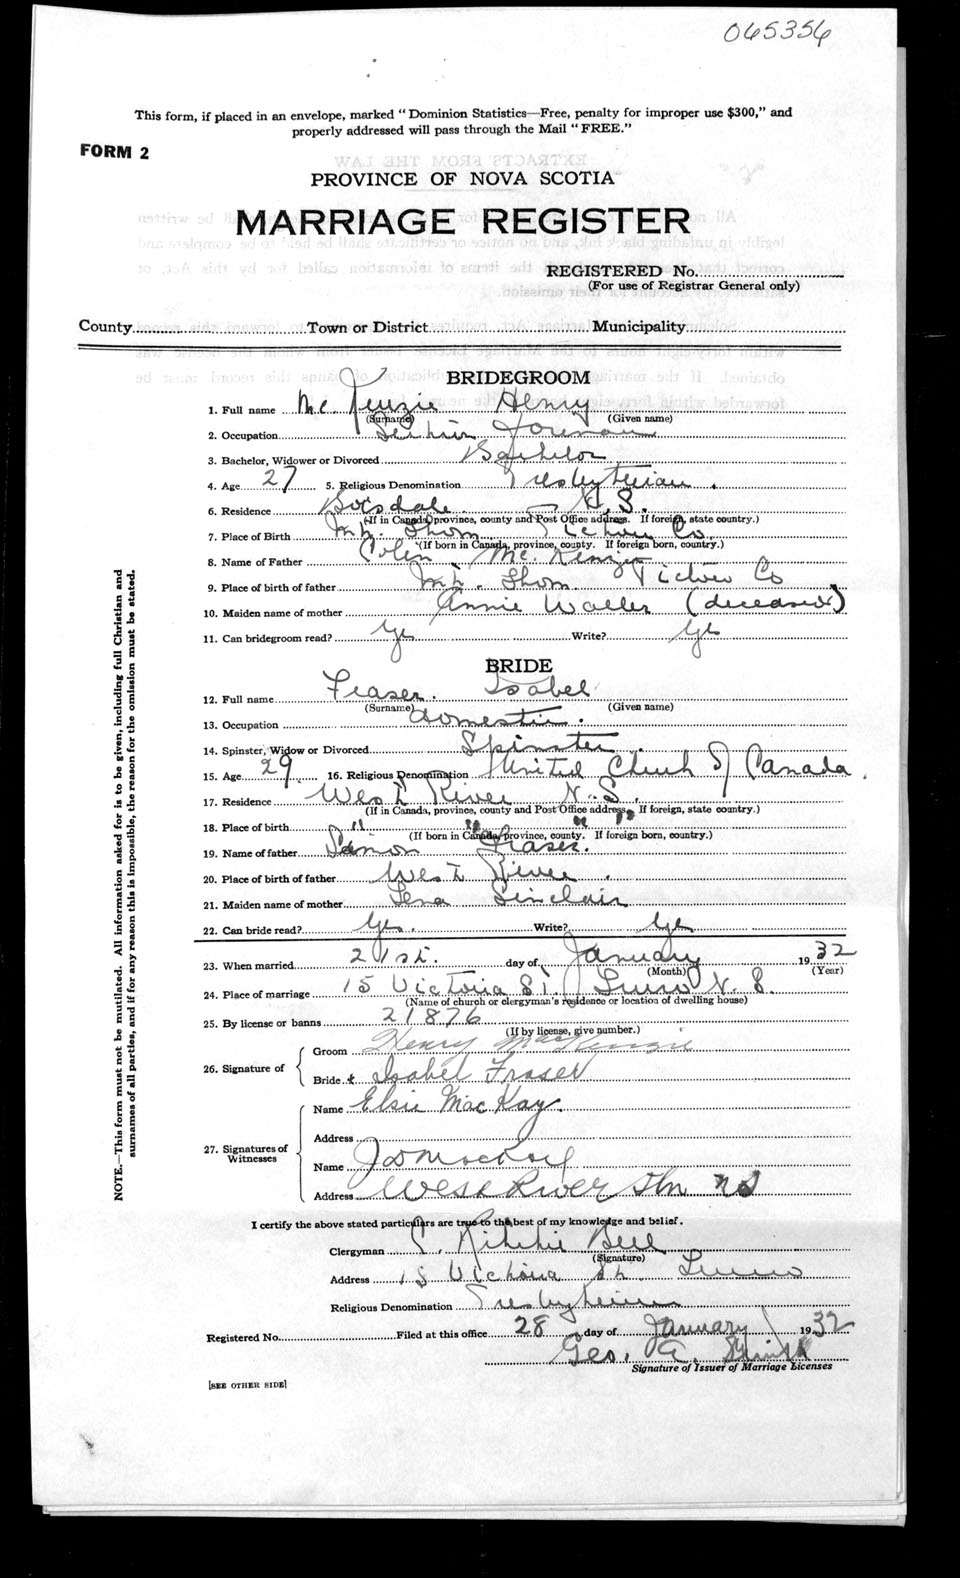 065356
This form, if placed in an envelope, marked "Dominion Statistics—Free, penalty for improper use $300," and
properly addressed will pass through the Mail "FREE."
FORM 2
PROVINCE OF NOVA SCOTIA
MARRIAGE REGISTER
REGISTERED No.
(For use of Registrar General only)
County Town or District Municipality
BRIDEGROOM
1. Full name McKenzie Henry
(Surname) (Given name)
2. Occupation Foreman
3. Bachelor, Widower or Divorced Bachelor
4. Age 27 5. Religious Denomination Presbyterian.
6. Residence N.S.
(If in Canada, province, county and Post Office address. If foreign, state country.)
7. Place of Birth Mt. Thom Pictou Co.
(If born in Canada, province, county. If foreign born, country.)
8. Name of Father Colin McKenzie
9. Place of birth of father Mt. Thom Pictou Co
10. Maiden name of mother Annie Waller (deceased)
11. Can bridegroom read? Yes Write? Yes
BRIDE
12. Full name Fraser. Isabel
(Surname) (Given name)
13. Occupation domestic.
14. Spinster, Widow or Divorced Spinster
15. Age 29 16. Religious Denomination United Church of Canada.
17. Residence West River N.S.
(If in Canada, province, county and Post Office address. If foreign, state country.)
18. Place of birth " " " "
(If born in Canada, province, county. If foreign born, country.)
19. Name of father Simon Fraser.
20. Place of birth of father West River.
21. Maiden name of mother Lena Sinclair
22. Can bride read? Yes. Write? Yes
23. When married 21st. day of January 1932
(Month) (Year)
24. Place of marriage 15 Victoria St. Truro N.S.
(Name of church or clergyman's residence or location of dwelling house)
25. By license or banns 21876
(If by license, give number.)
26. Signature of
Groom Henry MacKenzie
Bride x Isabel Fraser
27. Signatures of Witnesses
Name Elsie MacKay.
Address
Name MacKay
Address West River Stn NS
I certify the above stated particulars are true to the best of my knowledge and belief.
Clergyman C. Ritchie Bell
(Signature)
Address 15 Victoria St. Truro
Religious Denomination Presbyterian
Registered No. Filed at this office 28 day of January 1932
Geo. A.
Signature of Issuer of Marriage Licenses
[SEE OTHER SIDE]
NOTE.—This form must not be mutilated. All information asked for is to be given, including full Christian and
surnames of all parties, and if for any reason this is impossible, the reason for the omission must be stated.